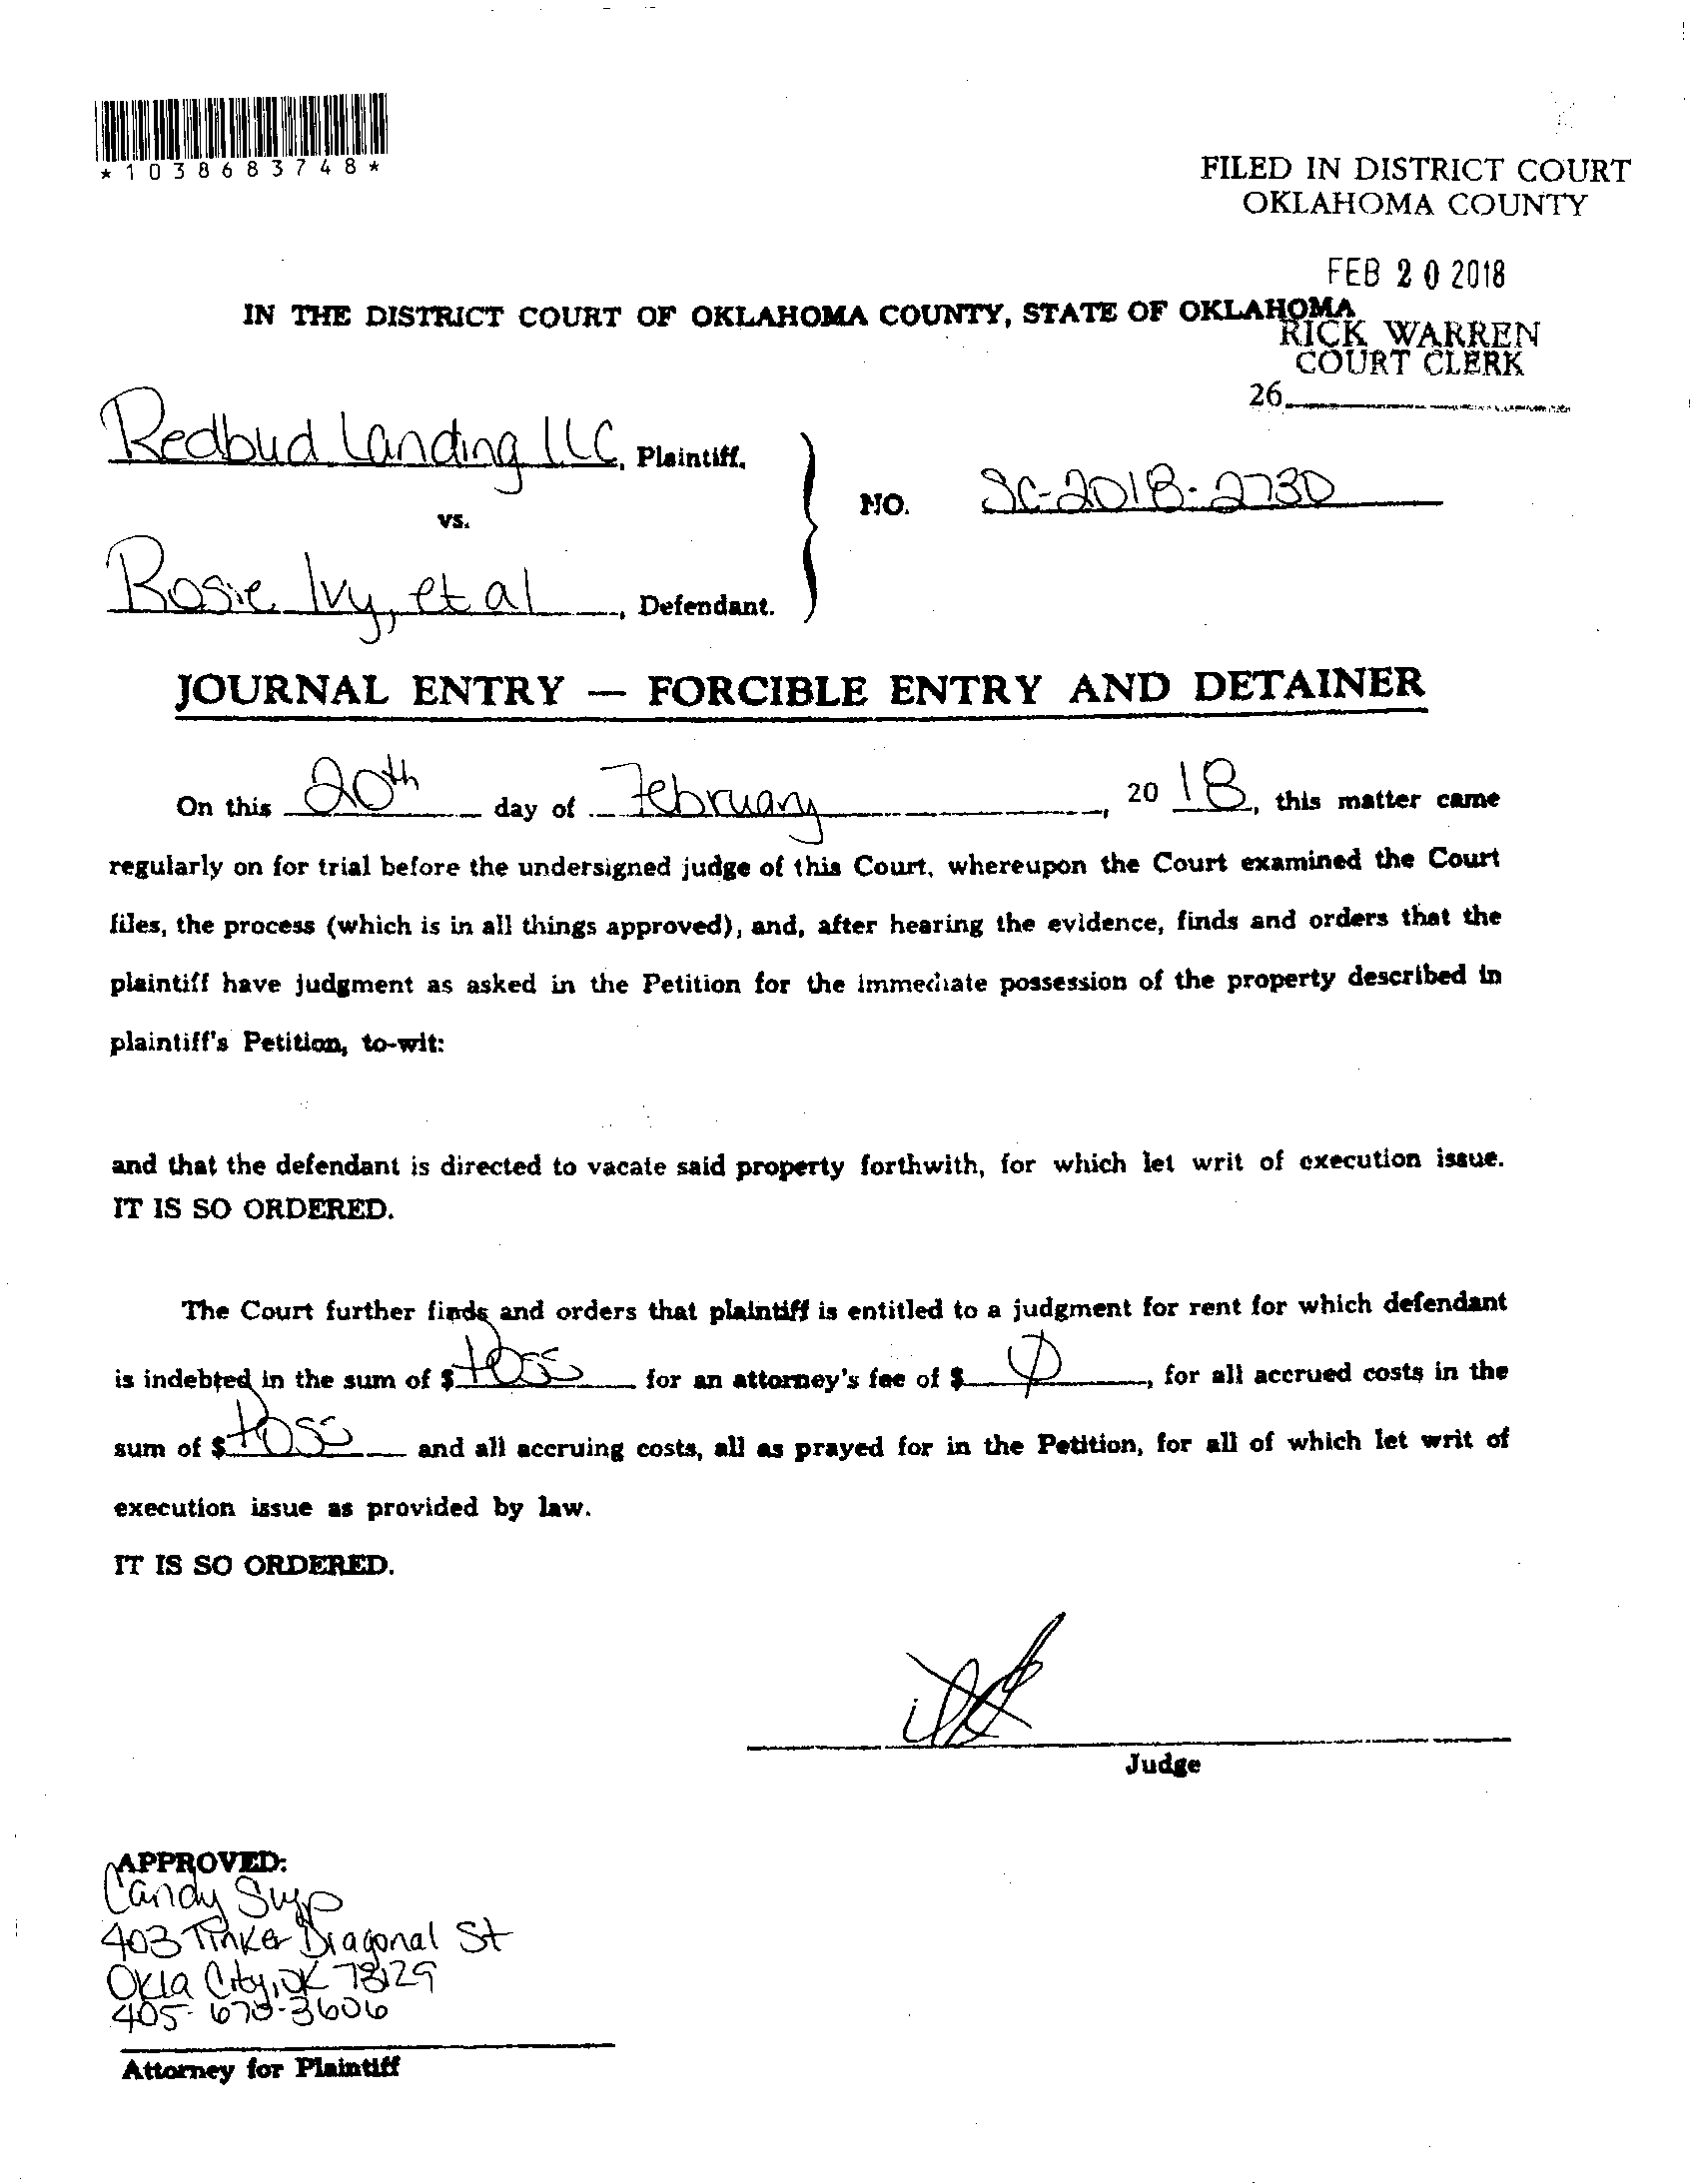 *1038683748*
FILED IN DISTRICT COURT
OKLAHOMA COUNTY
FEB 20 2018
IN THE DISTRICT COURT OF OKLAHOMA COUNTY, STATE OF OKLAHOMA
RICK WARREN
COURT CLERK
26
Redbud Landing LLC, Plaintiff,
vs.
NO. SC-2018-2730
Rosie Ivy, et al, Defendant.
JOURNAL ENTRY — FORCIBLE ENTRY AND DETAINER
On this 20th day of February, 2018, this matter came
regularly on for trial before the undersigned judge of this Court, whereupon the Court examined the Court
files, the process (which is in all things approved), and, after hearing the evidence, finds and orders that the
plaintiff have judgment as asked in the Petition for the immediate possession of the property described in
plaintiff's Petition, to-wit:
and that the defendant is directed to vacate said property forthwith, for which let writ of execution issue.
IT IS SO ORDERED.
The Court further finds and orders that plaintiff is entitled to a judgment for rent for which defendant
is indebted in the sum of $ Poss for an attorney's fee of $ , for all accrued costs in the
sum of $ Poss and all accruing costs, all as prayed for in the Petition, for all of which let writ of
execution issue as provided by law.
IT IS SO ORDERED.
Judge
APPROVED:
Candy
403 Tinker Diagonal St
Okla City, OK 73129
405-670-3606
Attorney for Plaintiff